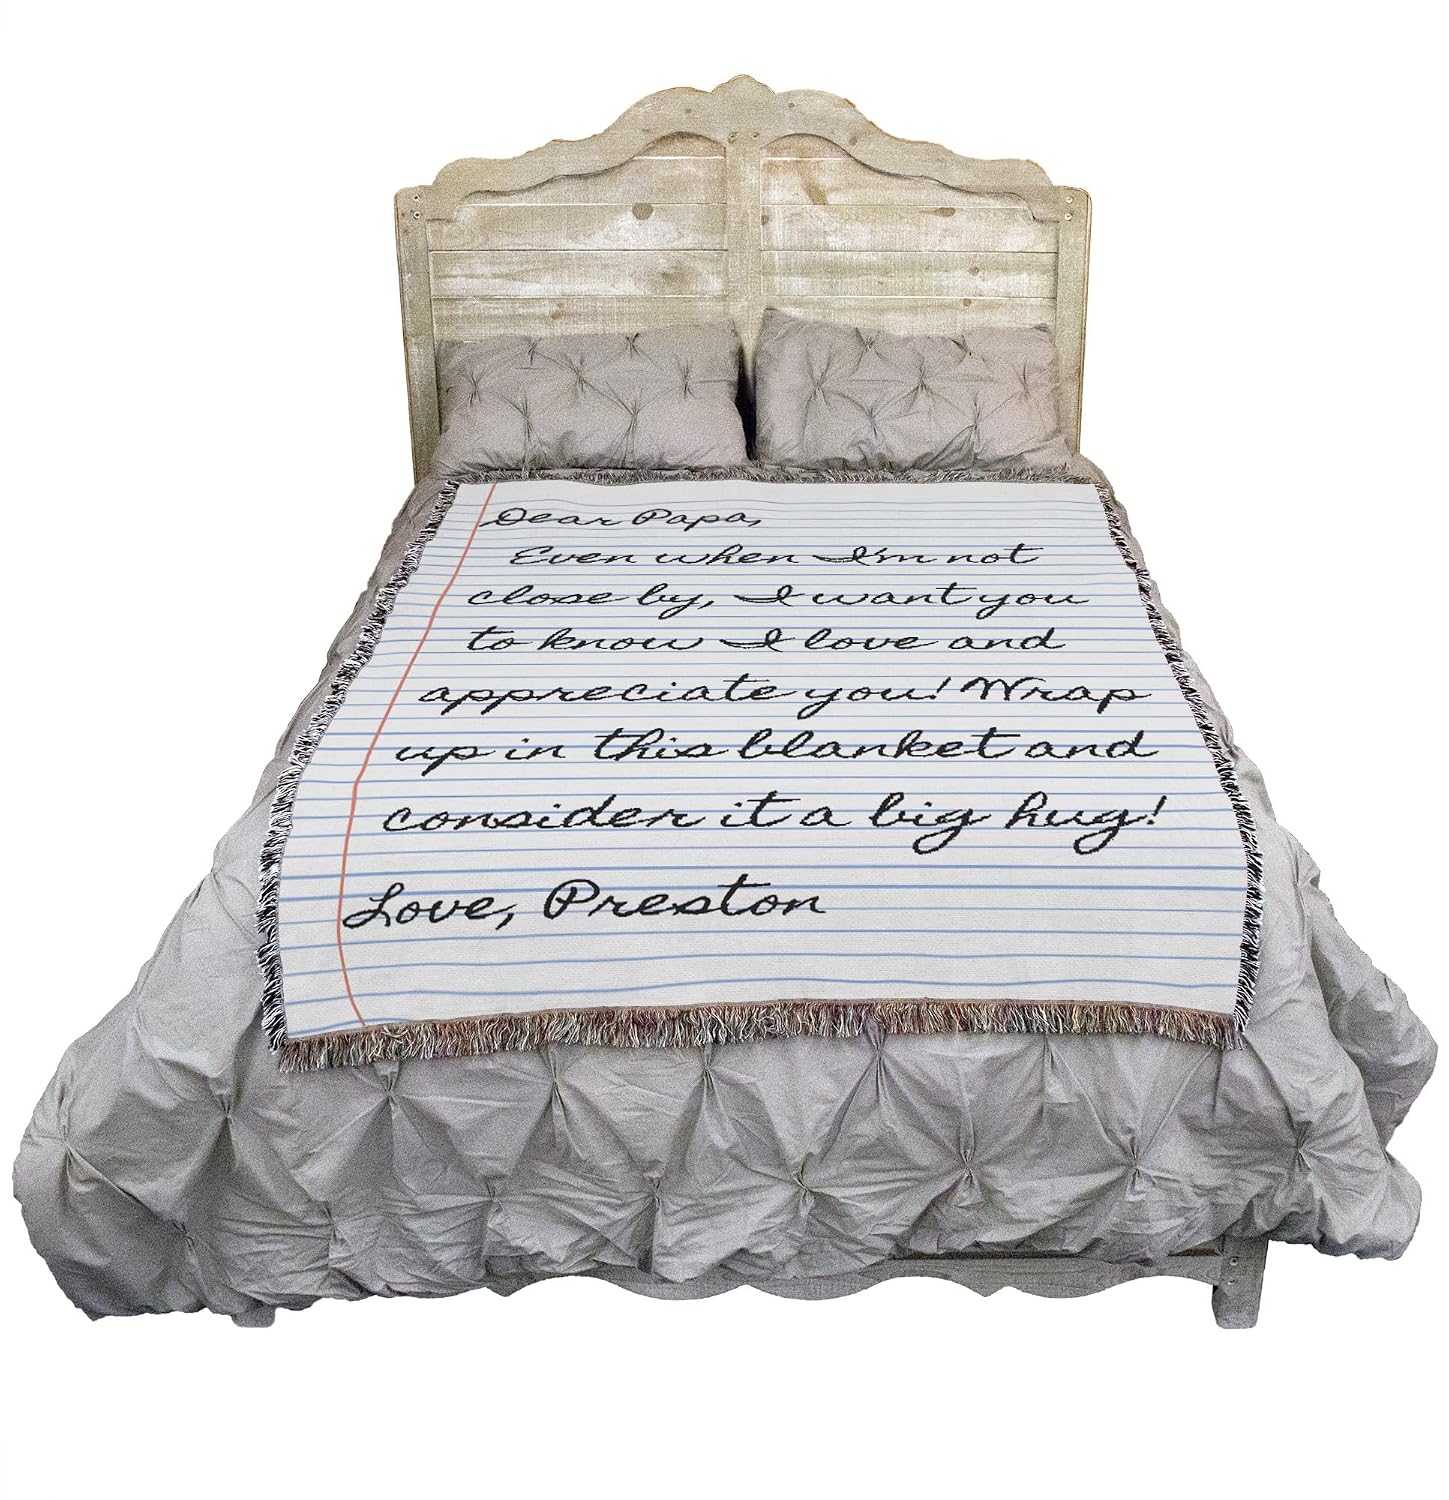 Dear Papa,
Even when I'm not
close by, I want you
to know I love and
appreciate you! Wrap
up in this blanket and
consider it a big hug!
Love, Preston